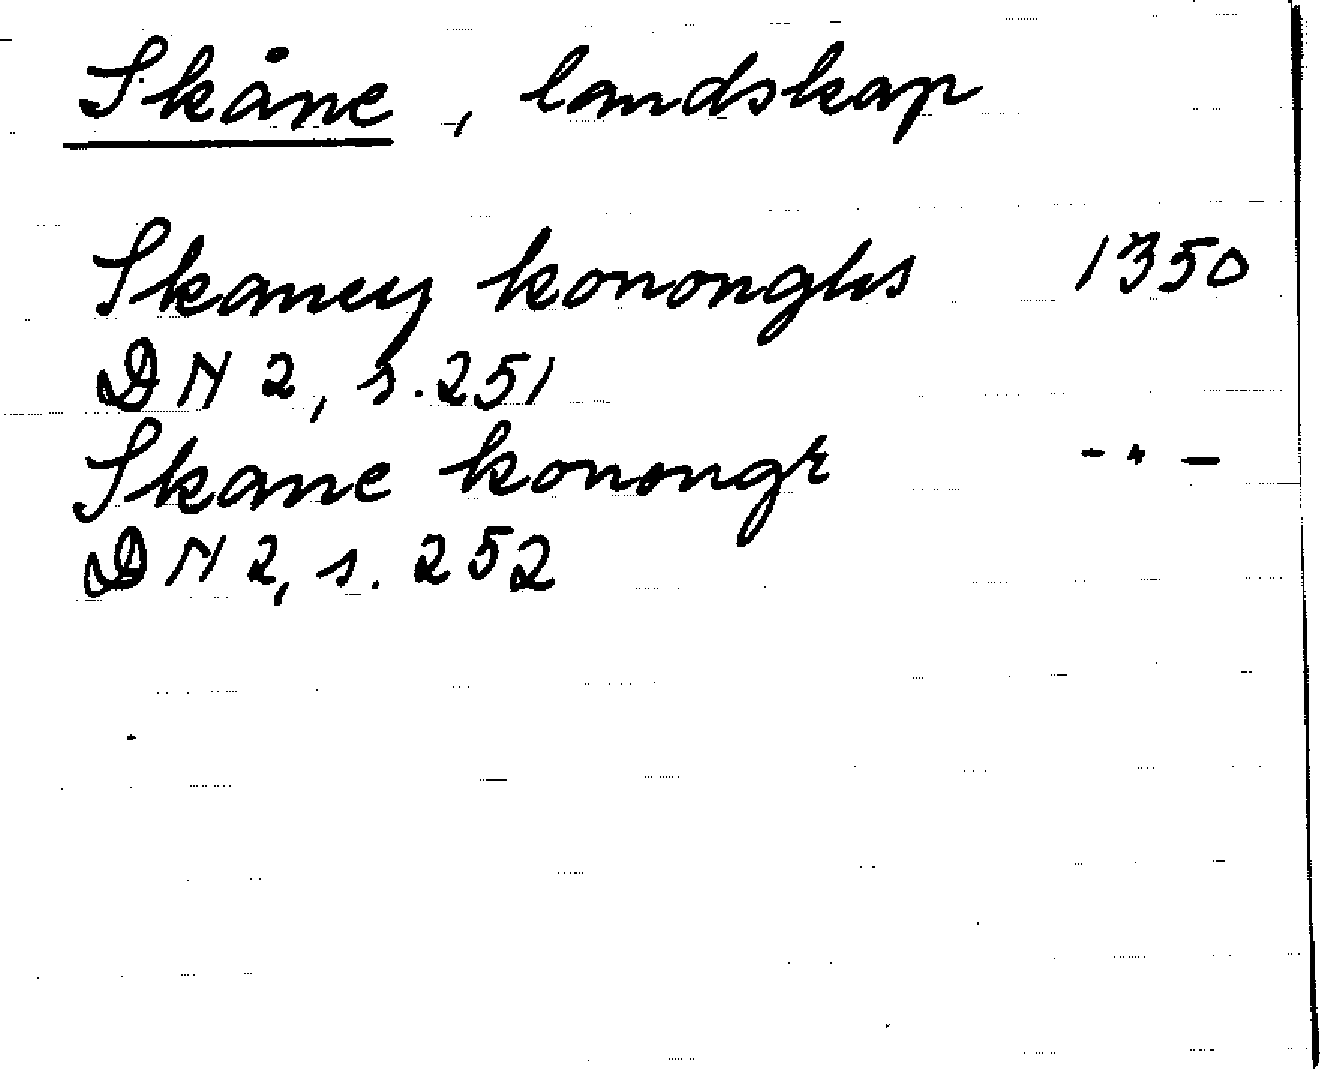 Skåne, landskap
Skaney kononghs 1350
DN 2, s. 251
Skane konongr - " -
DN 2, s. 252